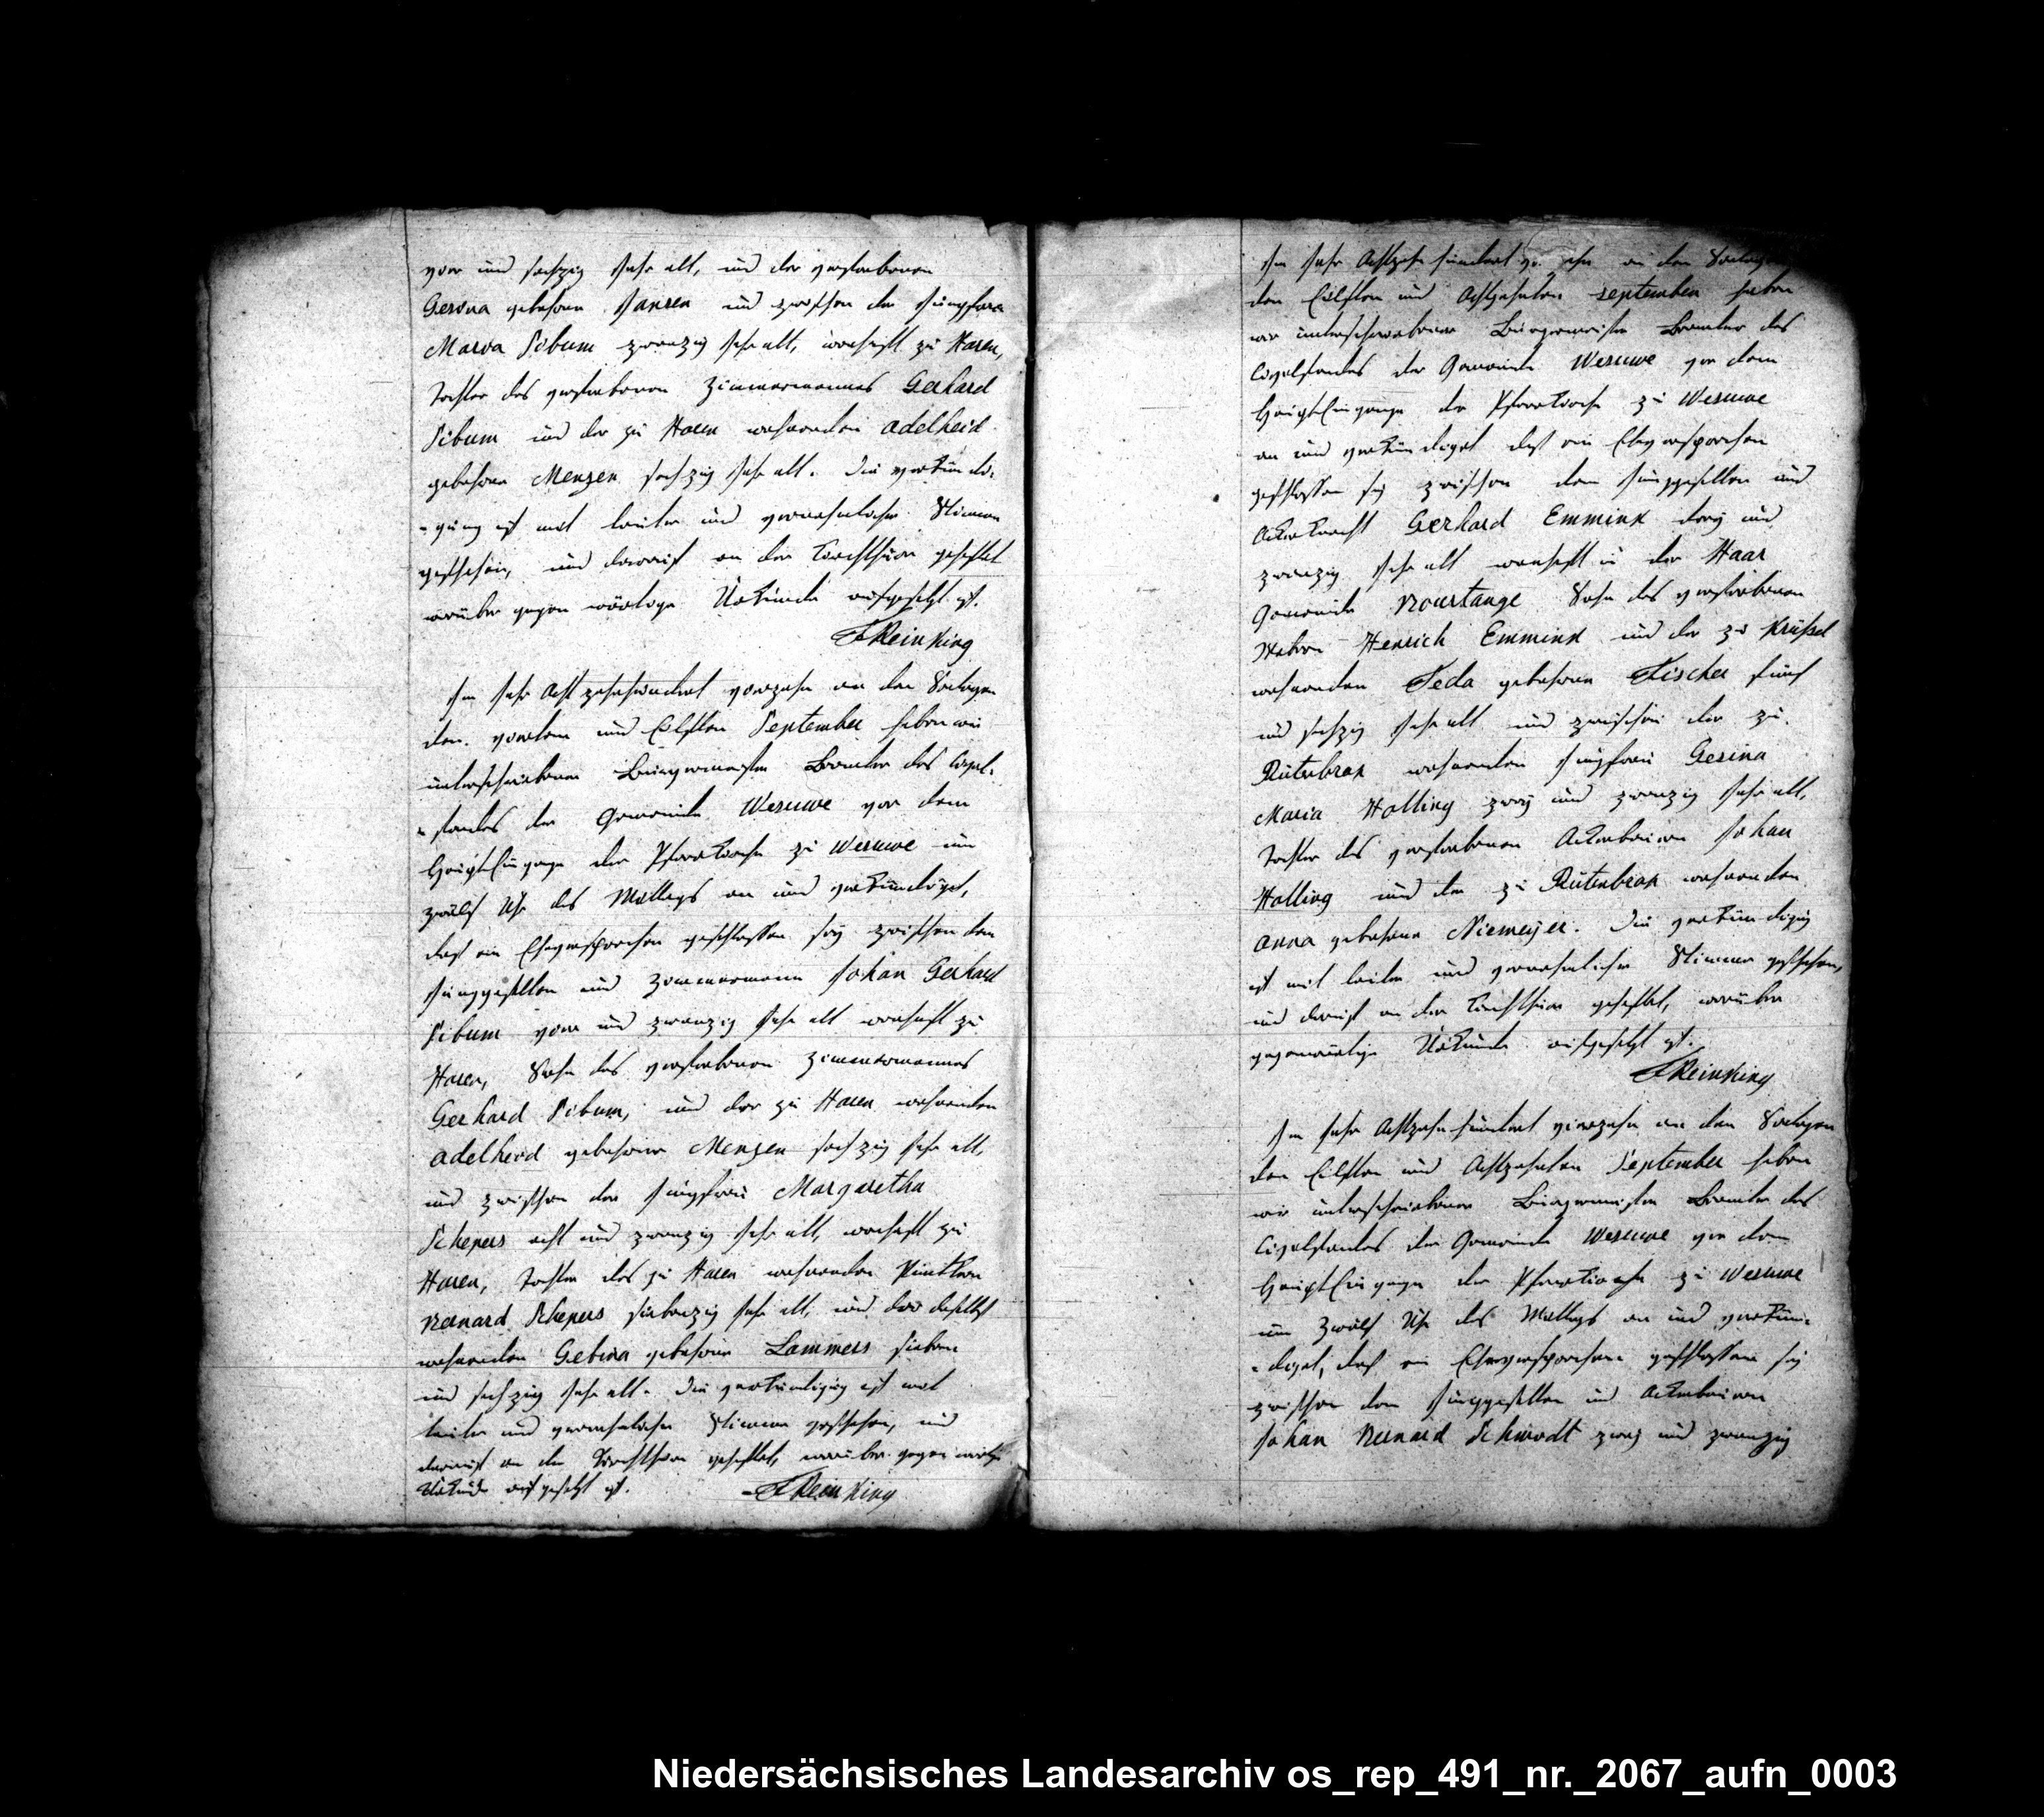 vier und sechzig Jahr alt, und der verstorbenen
Gesina gebohrne Jansen und zwischen der Jungfrau
Maria Sibum zwanzig Jahr alt, wohnhaft zu Haren,
Tochter des verstorbenen Zimmermannes Gerhard
Sibum und der zu Haren wohnenden Adelheid
gebohrne Menzen sechzig Jahr alt. Die Verkündi-
-gung ist mit lauter und vernehmlicher Stimme
geschehen, und darauf an der Kirchthüre geheftet
worüber gegenwärtige Urkunde aufgesetzt ist.
F Reinking
Im Jahr Achtzehnhundert vierzehn an den Sontagen
den vierten und Eilften September haben wir
unterschriebener Bürgermeister Beamter des Civil-
-standes der Gemeinde Wesuwe vor dem
HauptEingange der Pfarrkirche zu Wesuwe um
zwölf Uhr des Mittags an und verkündiget,
daß ein Eheversprechen geschlossen sey zwischen dem
Junggesellen und Zimmermann Johan Gerhard
Sibum vier und zwanzig Jahr alt wohnhaft zu
Haren, Sohn des verstorbenen Zimmermannes
Gerhard Sibum, und der zu Haren wohnenden
Adelheid gebohrne Menzen sechzig Jahr alt,
und zwischen der Jungfrau Margaretha
Schepers acht und zwanzig Jahr alt, wohnhaft zu
Haren, Tochter des zu Haren wohnenden Püntker
Bernard Schepers siebenzig Jahr alt, und der daselbst
wohnenden Gebina gebohrne Lammers sieben
und sechzig Jahr alt. Die Verkündigung ist mit
lauter und vernehmlicher Stimme geschehen, und
darauf an der Kirchthüre geheftet, worüber gegenwärtige
Urkunde aufgesetzt ist. F Reinking
Im Jahr Achtzehnhundert vierzehn an den Sontagen
den Eilften und Achtzehnten September haben
wir unterschriebener Bürgermeister Beamter des
Civilstandes der Gemeinde Wesuwe vor dem
HauptEingange der Pfarrkirche zu Wesuwe
an und verkündiget daß ein Eheversprechen
geschlossen sey zwischen dem Junggesellen und
Ackerknecht Gerhard Emmink drey und
zwanzig Jahr alt wohnhaft in der Haar
Gemeinde Bourtange Sohn des verstorbenen
Henrich Emmink und der zu Krüßel
wohnenden Feda gebohrne Fischer fünf
und sechzig Jahr alt und zwischen der zu
Rütenbrok wohnenden Jungfrau Gesina
Maria Holling zwey und zwanzig Jahr alt,
Tochter des verstorbenen Ackerbauern Johan
Holling und der zu Rütenbrok wohnenden
Anna gebohrne Niemeijer. Die Verkündigung
ist mit lauter und vernehmlicher Stimme geschehen,
und darauf an der Kirchthüre geheftet, worüber
gegenwärtige Urkunde aufgesetzt ist.
F Reinking
Im Jahr Achtzehnhundert vierzehn an den Sontagen
den Eilften und Achtzehnten September haben
wir unterschriebener Bürgermeister Beamter des
Civilstandes der Gemeinde Wesuwe vor dem
HauptEingange der Pfarrkirche zu Wesuwe
um Zwölf Uhr des Mittags an und verkün-
-diget, daß ein Eheversprechen geschlossen sey
zwischen dem Junggesellen und Ackerbauern
Johan Bernard Schmidt zwey und zwanzig
Niedersächsisches Landesarchiv os_rep_491_nr._2067_aufn_0003